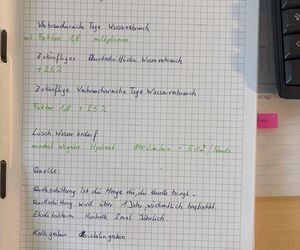 Verbrauchsreiche Tage Wasserverbrauch
mit Faktor 1,8 multiplizieren
Zukünftiger Durchschnittliche Wasserverbrauch
+25%
Zukünftige Verbrauchsreiche Tage Wasserverbrauch
Faktor 1,8 + 25%
Lösch Wasser bedarf
Hydrant 800 Liter/min - 50 m³/Stunde
Quelle:
Quellschüttung ist die Menge die, die Quelle bringt.
Quellschüttung wird über 1 Jahr, wöchentlich beobachtet.
Kontrolle 2 mal Jährlich.
Kalkgestein